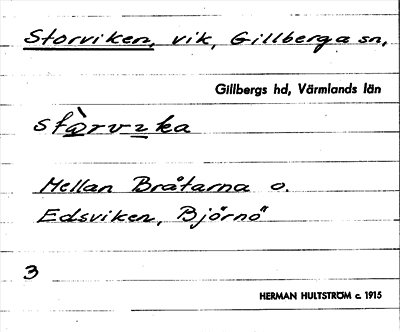 Storviken, vik, Gillberga sn,
Gillbergs hd, Värmlands län
stàrvıka
Mellan Bråtarna o.
Edsviken, Björnö
3
HERMAN HULTSTRÖM c. 1915